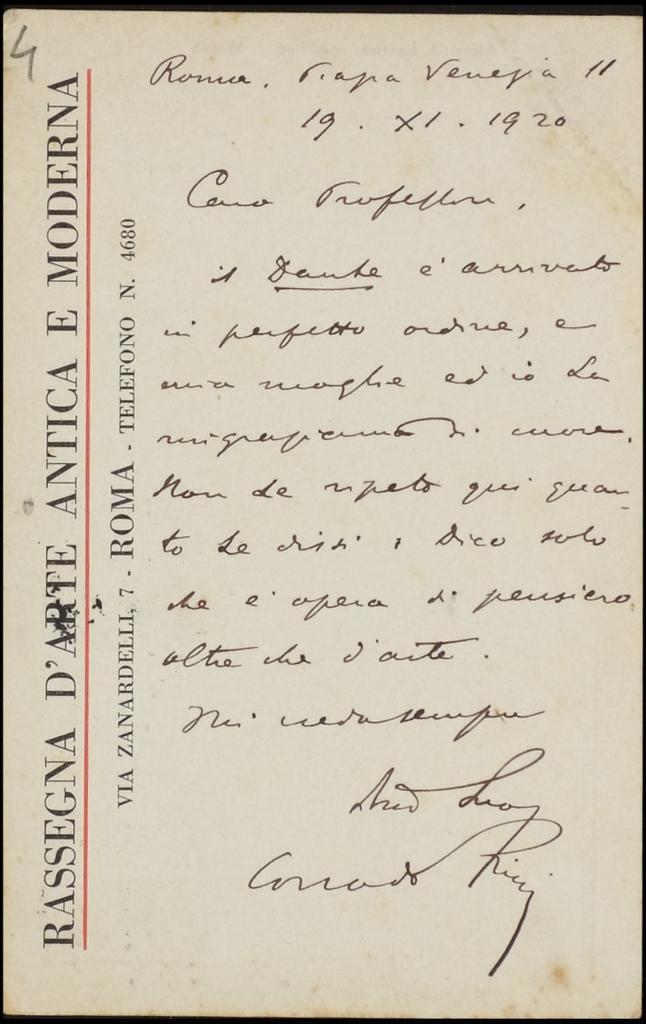 4
RASSEGNA D'ARTE ANTICA E MODERNA
VIA ZANARDELLI, 7 - ROMA - TELEFONO N. 4680
Roma. Piazza Venezia 11
19. XI. 1920
Caro Professore,
il Dante è arrivato
in perfetto ordine, e
mia moglie ed io La
ringraziamo di cuore.
Non Le ripeto qui quan-
to Le dissi; Dico solo
che è opera di pensiero
oltre che d'arte.
Mi creda sempre
Suo
Corrado Ricci